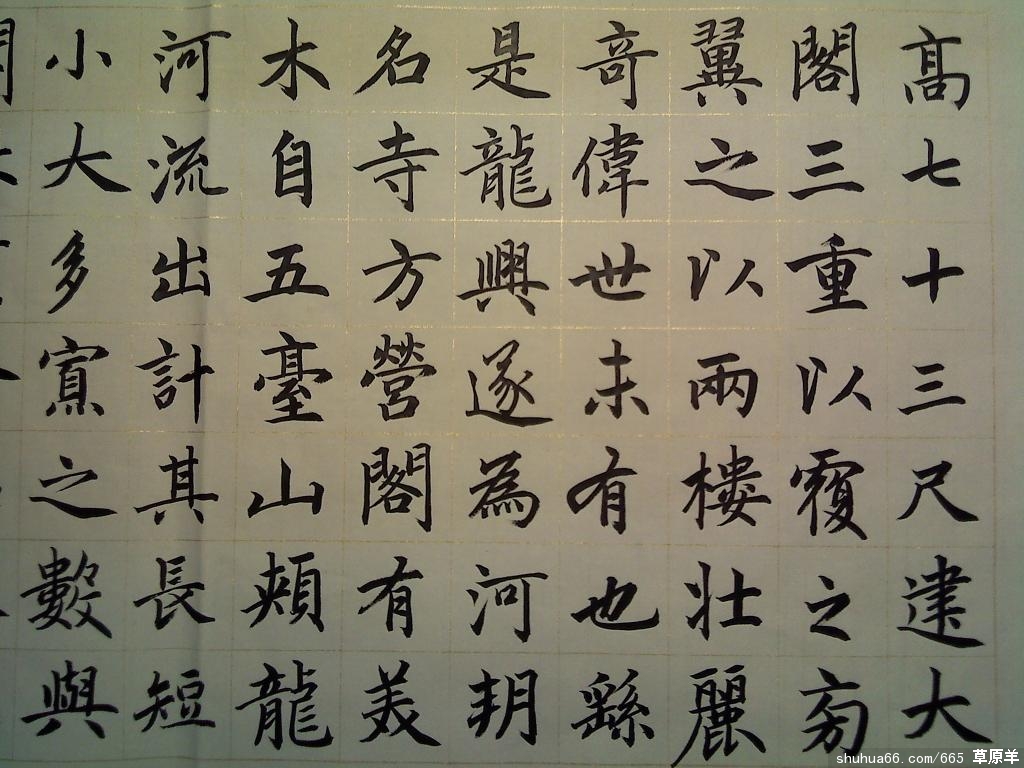 高七十三尺建大
閣三重以覆之旁
翼之以兩樓壯麗
奇偉世未有也繇
是龍興遂為河朔
名寺方營閣有美
木自五臺山頰龍
河流出計其長短
小大多寡之數與
shuhua66.com/665 草原羊